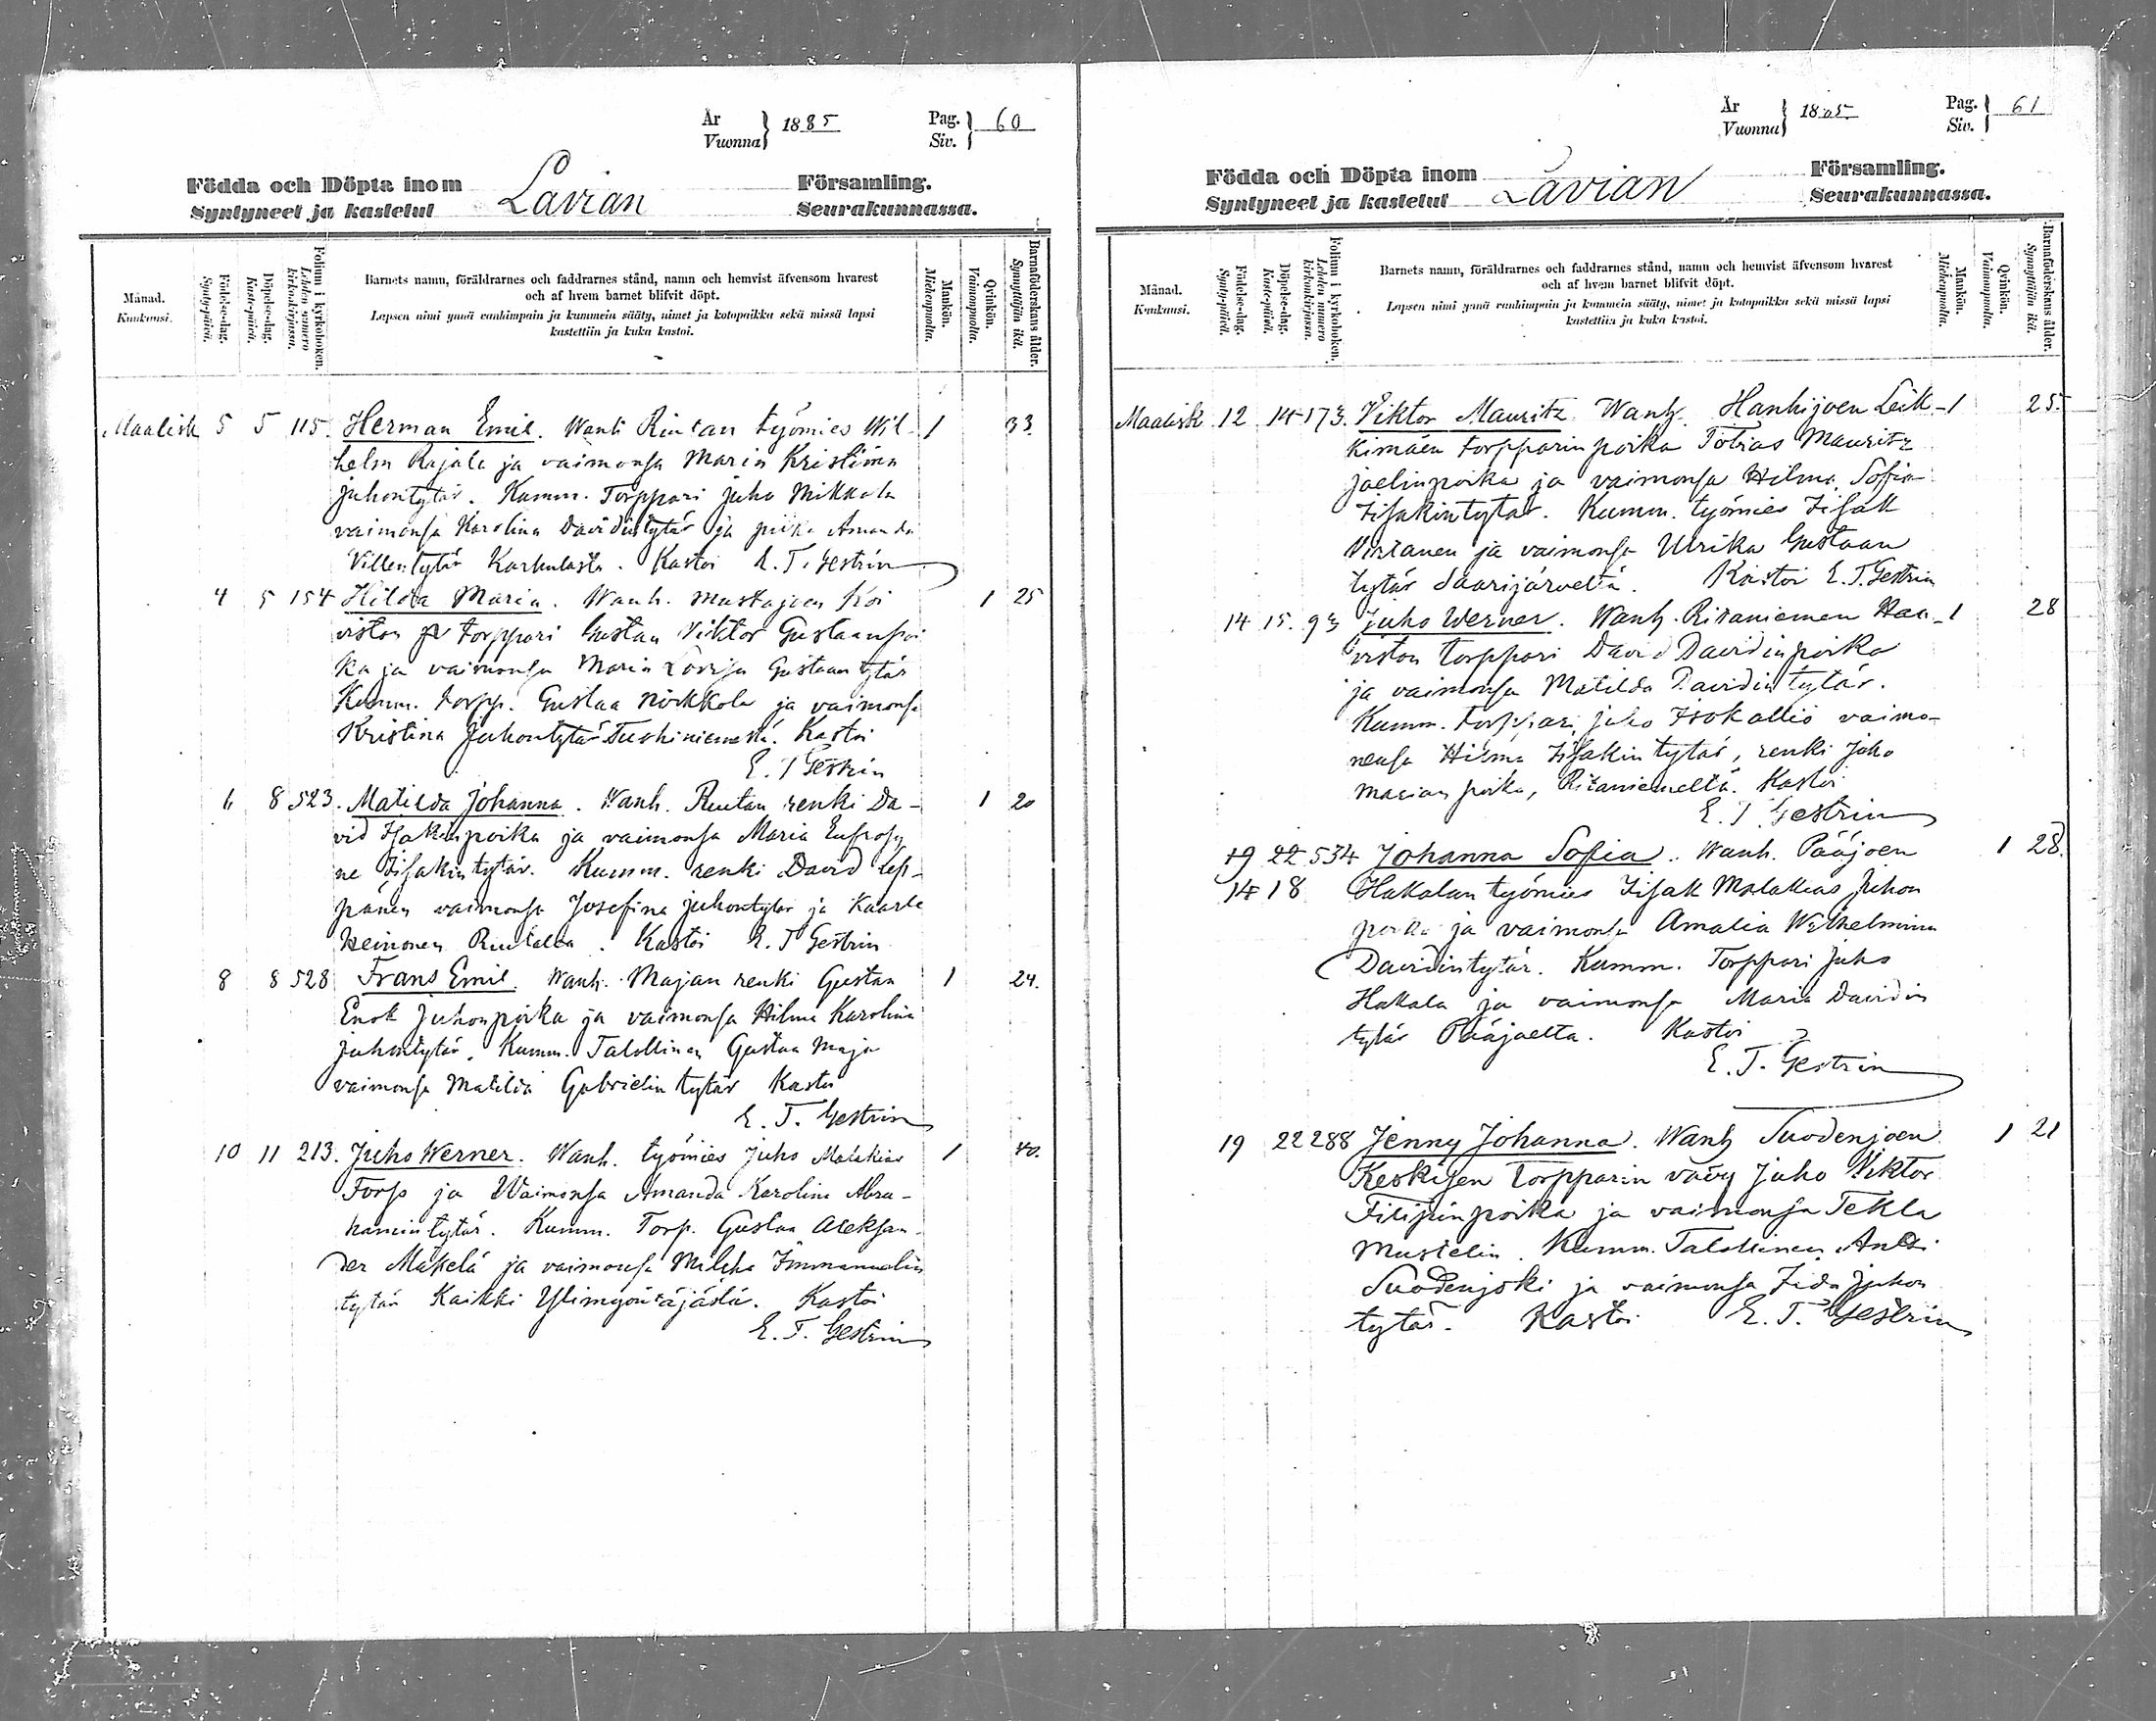 År
Vuonna } 1885 Pag.
Siv. } 60
Födda och Döpta inom Lavian Församling.
Syntyneet ja kastetut Seurakunnassa.
Månad.
Kuukausi.
Födelse-dag.
Synty-päivä.
Döpelse-dag.
Kaste-päivä.
Folium i kyrkoboken.
Lehden numero kirkonkirjassa.
Barnets namn, föräldrarnes och faddrarnes stånd, namn och hemvist äfvensom hvarest
och af hvem barnet blifvit döpt.
Lapsen nimi ynnä vanhimpain ja kummein sääty, nimet ja kotopaikka sekä missä lapsi
kastettiin ja kuka kastoi.
Mankön.
Miehenpuolta.
Qvinkön.
Vaimonpuolta.
Barnaföderskans ålder.
Synnyttäjän ikä.
Maalisk 5 5 115. Herman Emil. Wanh Riutan työmies Wil- 1 33.
helm Rajala ja vaimonsa Maria Kristiina
Juhontytär. Kumm. Torppari Juho Mikkola
vaimonsa Karolina Davidintytär ja piika Amanda
Villentytär Karhulasta. Kastoi E. T. Gestrin
4 5 154 Hilda Maria. Wanh. Mustajoen Koi 1 25
viston torppari Gustaa Viktor Gustaanpoi
ka ja vaimonsa Maria Lovisa Gustaantytär
Kumm. torpp. Gustaa Norkkola ja vaimonsa
Kristina Juhontytär Kastoi
E. T Gestrin
6 8 523. Matilda Johanna. Wanh. Riutan renki Da- 1 20
vid Isakinpoika ja vaimonsa Maria Eufrosy
ne Iisakintytär. Kumm. renki David Lep-
pänen vaimonsa Josefina Juhontytär ja Kaarle
Heinonen Riutalta. Kastoi E. T Gestrin
8 8 528 Frans Emil. Wanh. Majan renki Gustaa 1 24.
Enok Juhonpoika ja vaimonsa Hilma Karolina
Juhontytär. Kumm. Talollinen Gustaa Maja
vaimonsa Matilda Gabrielin tytär Kastoi
E. T. Gestrin
10 11 213. Juho Werner. Wanh. työmies Juho Malakias 1 40.
Forss ja Waimonsa Amanda Karolina Abra-
hamintytär. Kumm. Torp. Gustaa Aleksan-
der Mäkelä ja vaimonsa Milka Immanuelin
tytär Kaikki Kastoi
E. T. Gestrin
År
Vuonna } 1885 Pag.
Siv. } 61
Födda och Döpta inom Lavian Församling.
Syntyneet ja kastetut Seurakunnassa.
Månad.
Kuukausi.
Födelse-dag.
Synty-päivä.
Döpelse-dag.
Kaste-päivä.
Folium i kyrkoboken.
Lehden numero kirkonkirjassa.
Barnets namn, föräldrarnes och faddrarnes stånd, namn och hemvist äfvensom hvarest
och af hvem barnet blifvit döpt.
Lapsen nimi ynnä vanhimpain ja kummein sääty, nimet ja kotopaikka sekä missä lapsi
kastettiin ja kuka kastoi.
Mankön.
Miehenpuolta.
Qvinkön.
Vaimonpuolta.
Barnaföderskans ålder.
Synnyttäjän ikä.
Maalisk 12 14 173. Viktor Mauritz Wanh. Hanhijoen Leik- 1 25.
kimäen torpparin poika Tobias Mauritz
Joelinpoika ja vaimonsa Hilma Sofia
Iisakintytär. Kumm. työmies Iisak
Virtanen ja vaimonsa Ulrika Gustaan
tytär Saarijärveltä. Kastoi E. T. Gestrin
14 15. 93 Juho Werner. Wanh. Ritaniemen Haa- 1 28
viston torppari David Davidinpoika
ja vaimonsa Matilda Davidintytär.
Kumm. torppari Juho Isokallio vaimo-
nensa Hilma Iisakin tytär, renki Juho
Marian poika, Ritaniemeltä. Kastoi
E. T Gestrin
19 22 534 Johanna Sofia. Wanh. Pääjoen 1 28.
14 18 Hakalan työmies Iisak Malakias Juhon
poika ja vaimonsa Amalia Wilhelmina
Davidintytär. Kumm. Torppari Juho
Hakala ja vaimonsa Maria Davidin
tytär Pääjoelta. Kastoi
E. T. Gestrin
19 22 288 Jenny Johanna. Wanh Suodenjoen 1 21
Keskisen torpparin vävy Juho Viktor
Filipinpoika ja vaimonsa Tekla
Mustelin. Kumm. Talollinen Antti
Suodenjoki ja vaimonsa Iida Juhon
tytär. Kastoi E. T. Gestrin